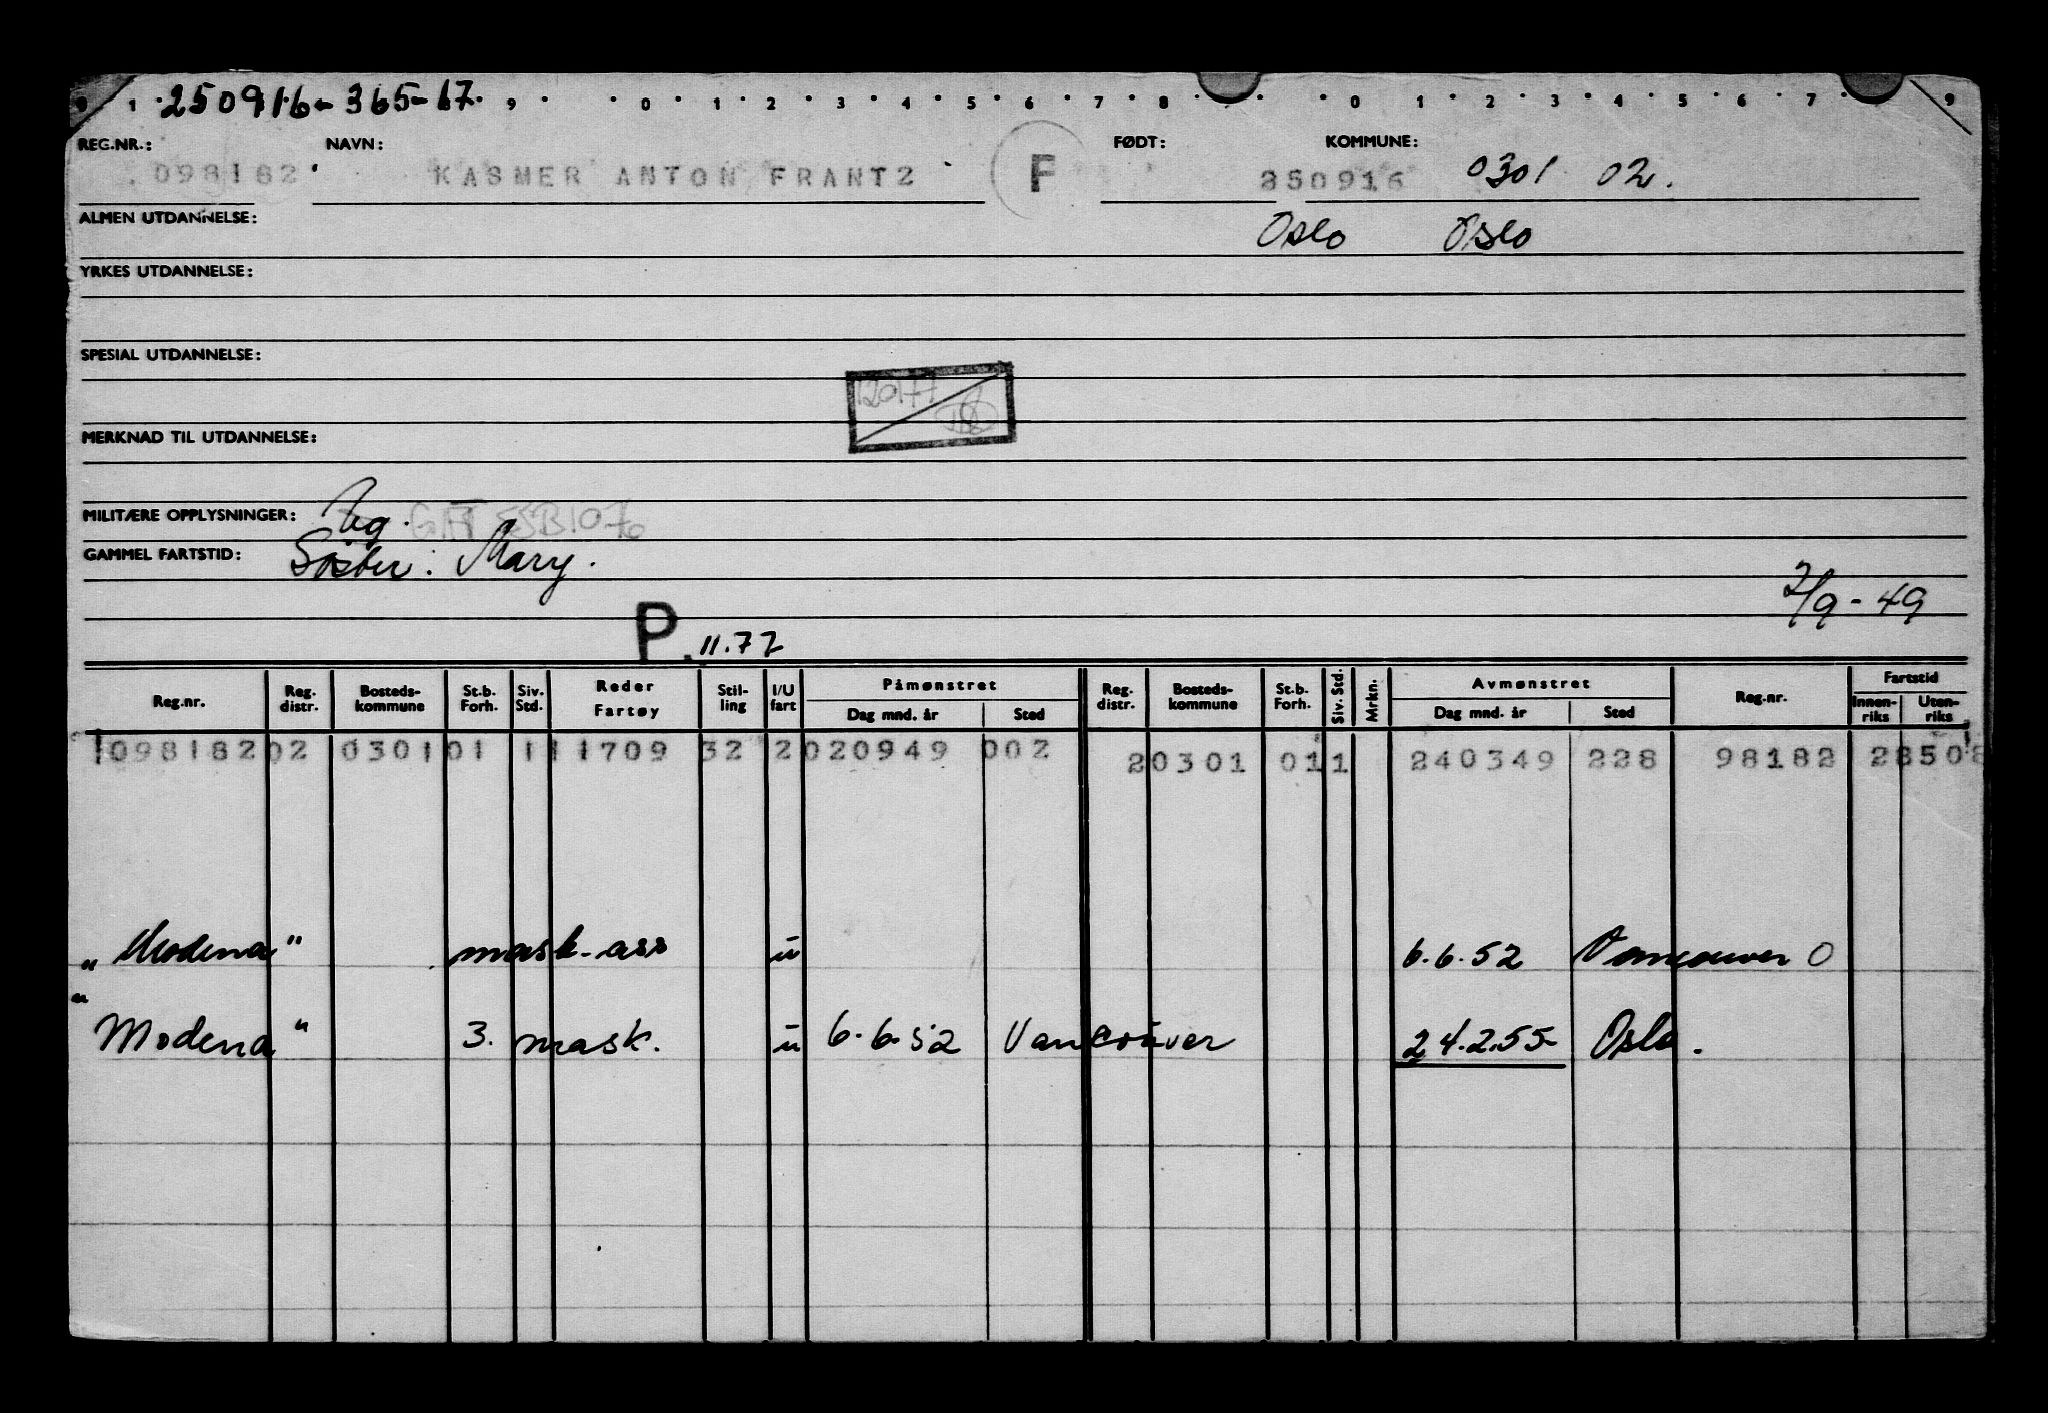 1 250916-365-67. 9 0 1 2 3 4 5 6 7 8 0 1 2 3 4 5 6 7 9
REG.NR.: NAVN: FØDT: KOMMUNE:
098182 KASMER ANTON FRANTZ F 250916 0301 02.
ALMEN UTDANNELSE: Oslo Oslo
YRKES UTDANNELSE:
SPESIAL UTDANNELSE:
120177
MERKNAD TIL UTDANNELSE:
MILITÆRE OPPLYSNINGER: Ug.
GAMMEL FARTSTID: Søster: Mary.
2/9-49
P. 11.77
Reg.nr. Reg. distr. Bosteds-kommune St.b. Forh. Siv. Std. Reder Fartøy Stil-ling I/U fart Påmønstret Dag mnd. år Sted Reg. distr. Bosteds-kommune St.b. Forh. Siv. Std. Mrkn. Avmønstret Dag mnd. år Sted Reg.nr. Fartstid Innen-riks Uten-riks
109818202 0301 01 111709 32 2 020949 002 20301 011 240349 228 98182 28508
„Modena" mask-ass u 6.6.52 Vancouver O
"Modena" 3. mask. u 6.6.52 Vancouver 24.2.55 Oslo.